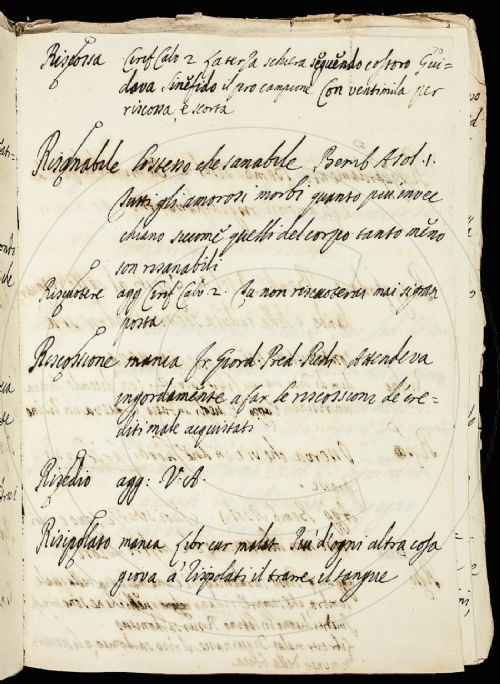 70
Riscossa Ciriff Calv. 2. La terza schiera seguendo costoro Gui-
dava Sinefido il pro campione Con ventimila per
riscossa, e scorta
Risanabile Lo stesso che sanabile Bemb. Asol. 1.
Tutti gli amorosi morbi quanto più invec
chiano siccome quelli del corpo tanto meno
son risanabili
Riscuotere agg Ciriff Calv. 2. Tu non riscuoterai mai si gran
posta
Riscossione manca fr. Giord. Pred. Attendeva
ingordamente a far le riscossioni de' cre-
diti male acquistati
Risedio agg: V. A.
Risipolato manca Libr cur malat. Più d'ogni altra cosa
giova a' risipolati il trarre il sangue